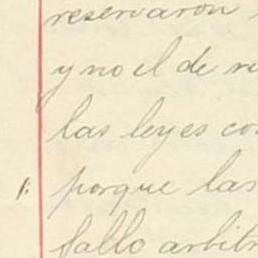 reservaron
y no el de re
las leyes co
porque las
fallo arbitr